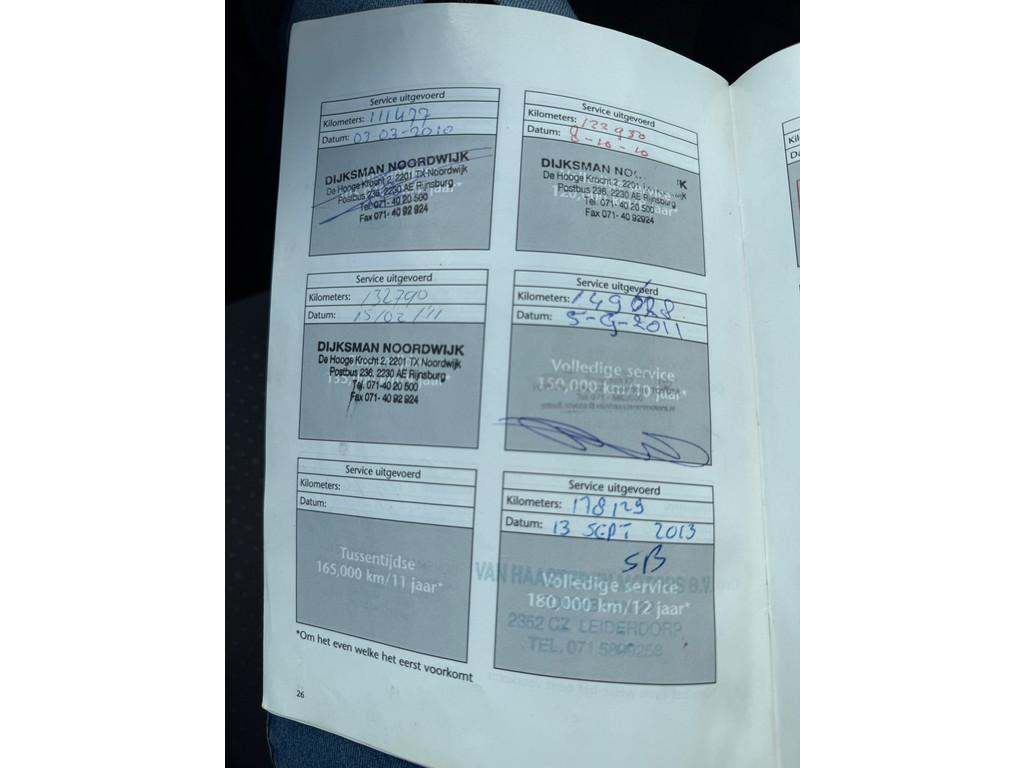 Service uitgevoerd
Kilometers: 111477
Datum: 03-03-2010
DIJKSMAN NOORDWIJK
De Hooge Krocht 2, 2201 TX Noordwijk
Postbus 236, 2230 AE Rijnsburg
Tel. 071-40 20 500
Fax 071- 40 92 924
Service uitgevoerd
Kilometers: 122980
Datum: 8-10-10
DIJKSMAN
De Hooge Krocht 2, 2201
Postbus 236, 2230 AE Rijnsburg
Tel. 071- 40 20 500
Fax 071- 40 92924
Service uitgevoerd
Kilometers: 132790
Datum: 15/02/'11
DIJKSMAN NOORDWIJK
De Hooge Krocht 2, 2201 TX Noordwijk
Postbus 236, 2230 AE Rijnsburg
Tel. 071-40 20 500
Fax 071- 40 92 924
Service uitgevoerd
Kilometers: 149628
Datum: 5-9-2011
Volledige service
150,000 km/10 jaar*
Service uitgevoerd
Kilometers:
Datum:
Tussentijdse
165,000 km/11 jaar*
Service uitgevoerd
Kilometers: 178129
Datum: 13 SEPT 2013
SB
Volledige service
180,000 km/12 jaar*
2352 CZ LEIDERDORP
*Om het even welke het eerst voorkomt
26